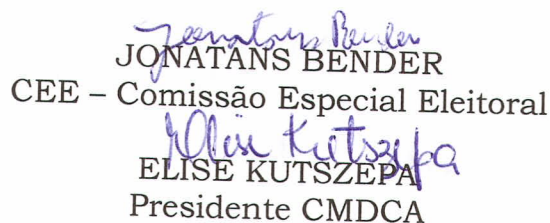 Jonatans Bender
JONATANS BENDER
CEE – Comissão Especial Eleitoral
Elise Kutszepa
ELISE KUTSZEPA
Presidente CMDCA